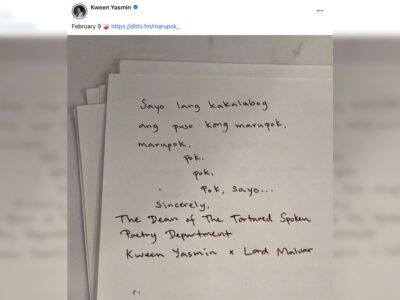 Kween Yasmin
February 9 ❤️‍🩹 https://ditto.fm/marupok_
Sayo lang kakalubog
ang puso kong marupok,
marupok,
pok,
pok,
pok, sayo...
Sincerely,
The Dean of The Tortured Spoken
Poetry Department
Kween Yasmin x Lord Malvar